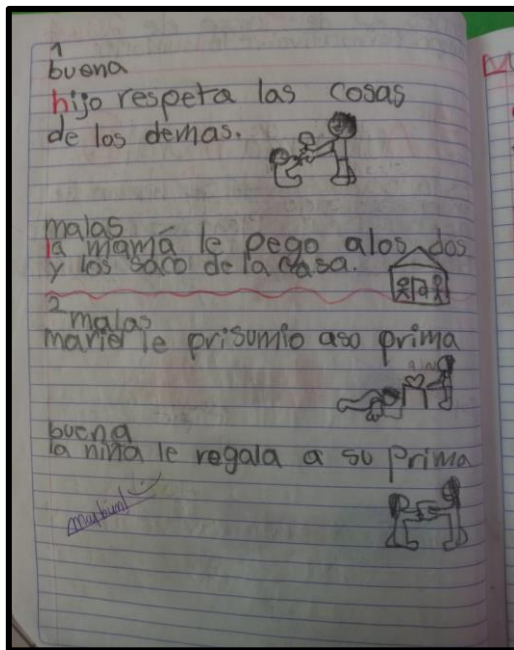 1
buena
hijo respeta las cosas
de los demas.
malas
la mamá le pego alos dos
y los saco de la casa.
2 malas
mariel le prisumio aso prima
buena
la niña le regala a su prima
muy bien!